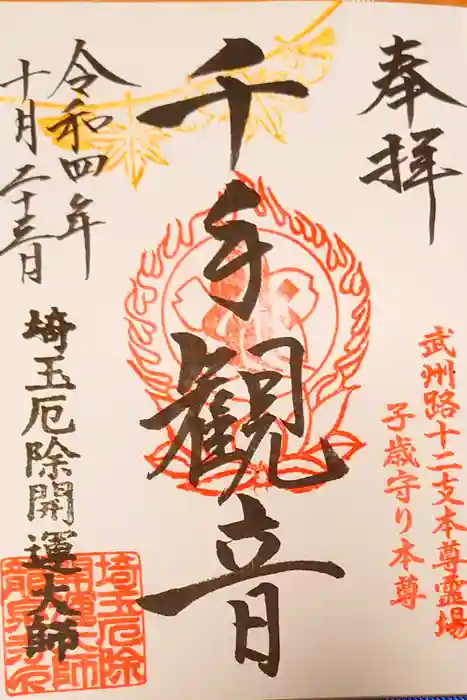 奉拝
武州路十二支本尊霊場
子歳守り本尊
千手観音
令和四年
十月二十三日
埼玉厄除開運大師
埼玉厄除
開運大師